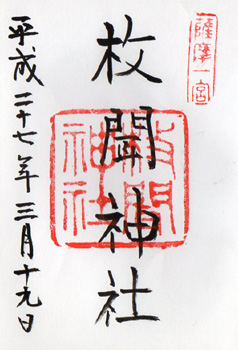 薩摩一宮
枚聞神社
枚聞神社
平成二十七年三月十九日